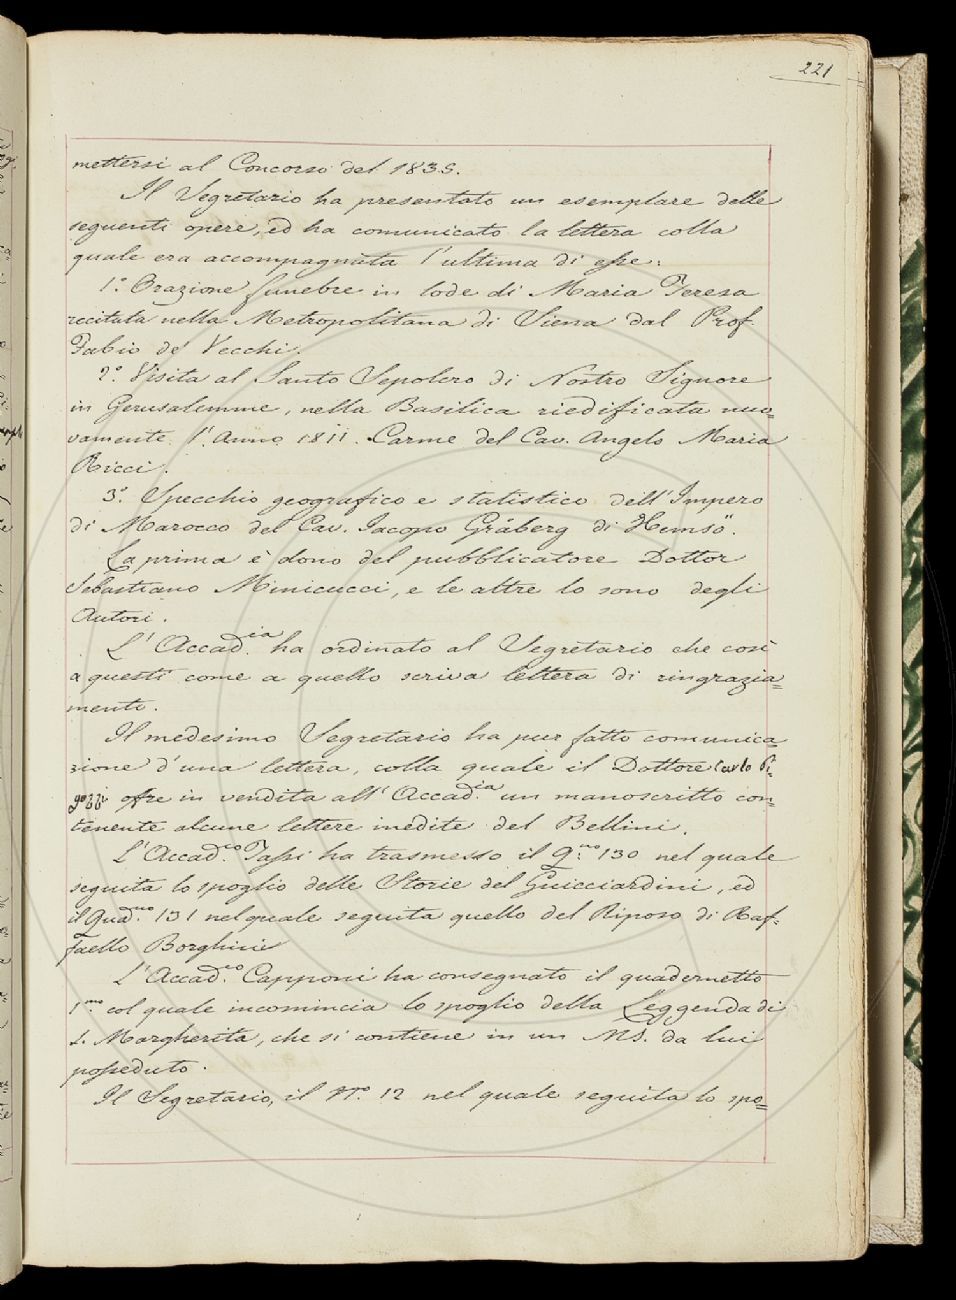 221
mettersi al Concorso del 1835.
Il Segretario ha presentato un esemplare delle
seguenti opere, ed ha comunicato la lettera colla
quale era accompagnata l'ultima di esse:
1.° Orazione funebre in lode di Maria Teresa
recitata nella Metropolitana di Siena dal Prof.
Fabio de' Vecchi.
2.° Visita al Santo Sepolcro di Nostro Signore
in Gerusalemme, nella Basilica riedificata nuo=
vamente l'anno 1811. Carme del Cav. Angelo Maria
Ricci.
3.° Specchio geografico e statistico dell'Impero
di Marocco del Cav. Jacopo Gräberg di Hemsö.
La prima è dono del pubblicatore Dottor
Sebastiano Minicucci, e le altre lo sono degli
Autori.
L'Accad.ia ha ordinato al Segretario che così
a questi come a quello scriva lettera di ringrazia=
mento.
Il medesimo Segretario ha pur fatto comunica=
zione d'una lettera, colla quale il Dottore Carlo Pi=
gozzi offre in vendita all'Accad.ia un manoscritto con=
tenente alcune lettere inedite del Bellini.
L'Accad.co Tassi ha trasmesso il Q.no 130 nel quale
seguita lo spoglio delle Storie del Guicciardini, ed
il Quad.no 131 nel quale seguita quello del Riposo di Raf=
faello Borghini
L'Accad.co Capponi ha consegnato il quadernetto
1.mo col quale incomincia lo spoglio della Leggenda di
S. Margherita, che si contiene in un MS. da lui
posseduto.
Il Segretario, il N.ro 12 nel quale seguita lo spo=